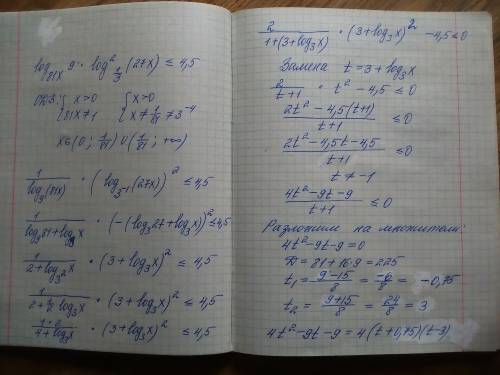 log_{81x} 9 · log²_{1/3} (27x) ≤ 4,5
ОДЗ: { x > 0 { x > 0
81x ≠ 1 x ≠ 1/81 ≠ 3^{-4}
x ∈ (0; 1/81) ∪ (1/81; +∞)
1/log₉(81x) · (log_{3^{-1}} (27x))² ≤ 4,5
1/(log₉81 + log₉x) · (-(log₃27 + log₃x))² ≤ 4,5
1/(2 + log_{3²} x) · (3 + log₃x)² ≤ 4,5
1/(2 + 1/2 log₃x) · (3 + log₃x)² ≤ 4,5
1·2/(4 + log₃x) · (3 + log₃x)² ≤ 4,5
2/(1 + (3 + log₃x)) · (3 + log₃x)² - 4,5 ≤ 0
Замена t = 3 + log₃x
2/(t+1) · t² - 4,5 ≤ 0
(2t² - 4,5(t+1))/(t+1) ≤ 0
(2t² - 4,5t - 4,5)/(t+1) ≤ 0
t ≠ -1
(4t² - 9t - 9)/(t+1) ≤ 0
Разложим на множители:
4t² - 9t - 9 = 0
D = 81 + 16·9 = 225
t₁ = (9-15)/8 = -6/8 = -0,75
t₂ = (9+15)/8 = 24/8 = 3
4t² - 9t - 9 = 4(t + 0,75)(t - 3)